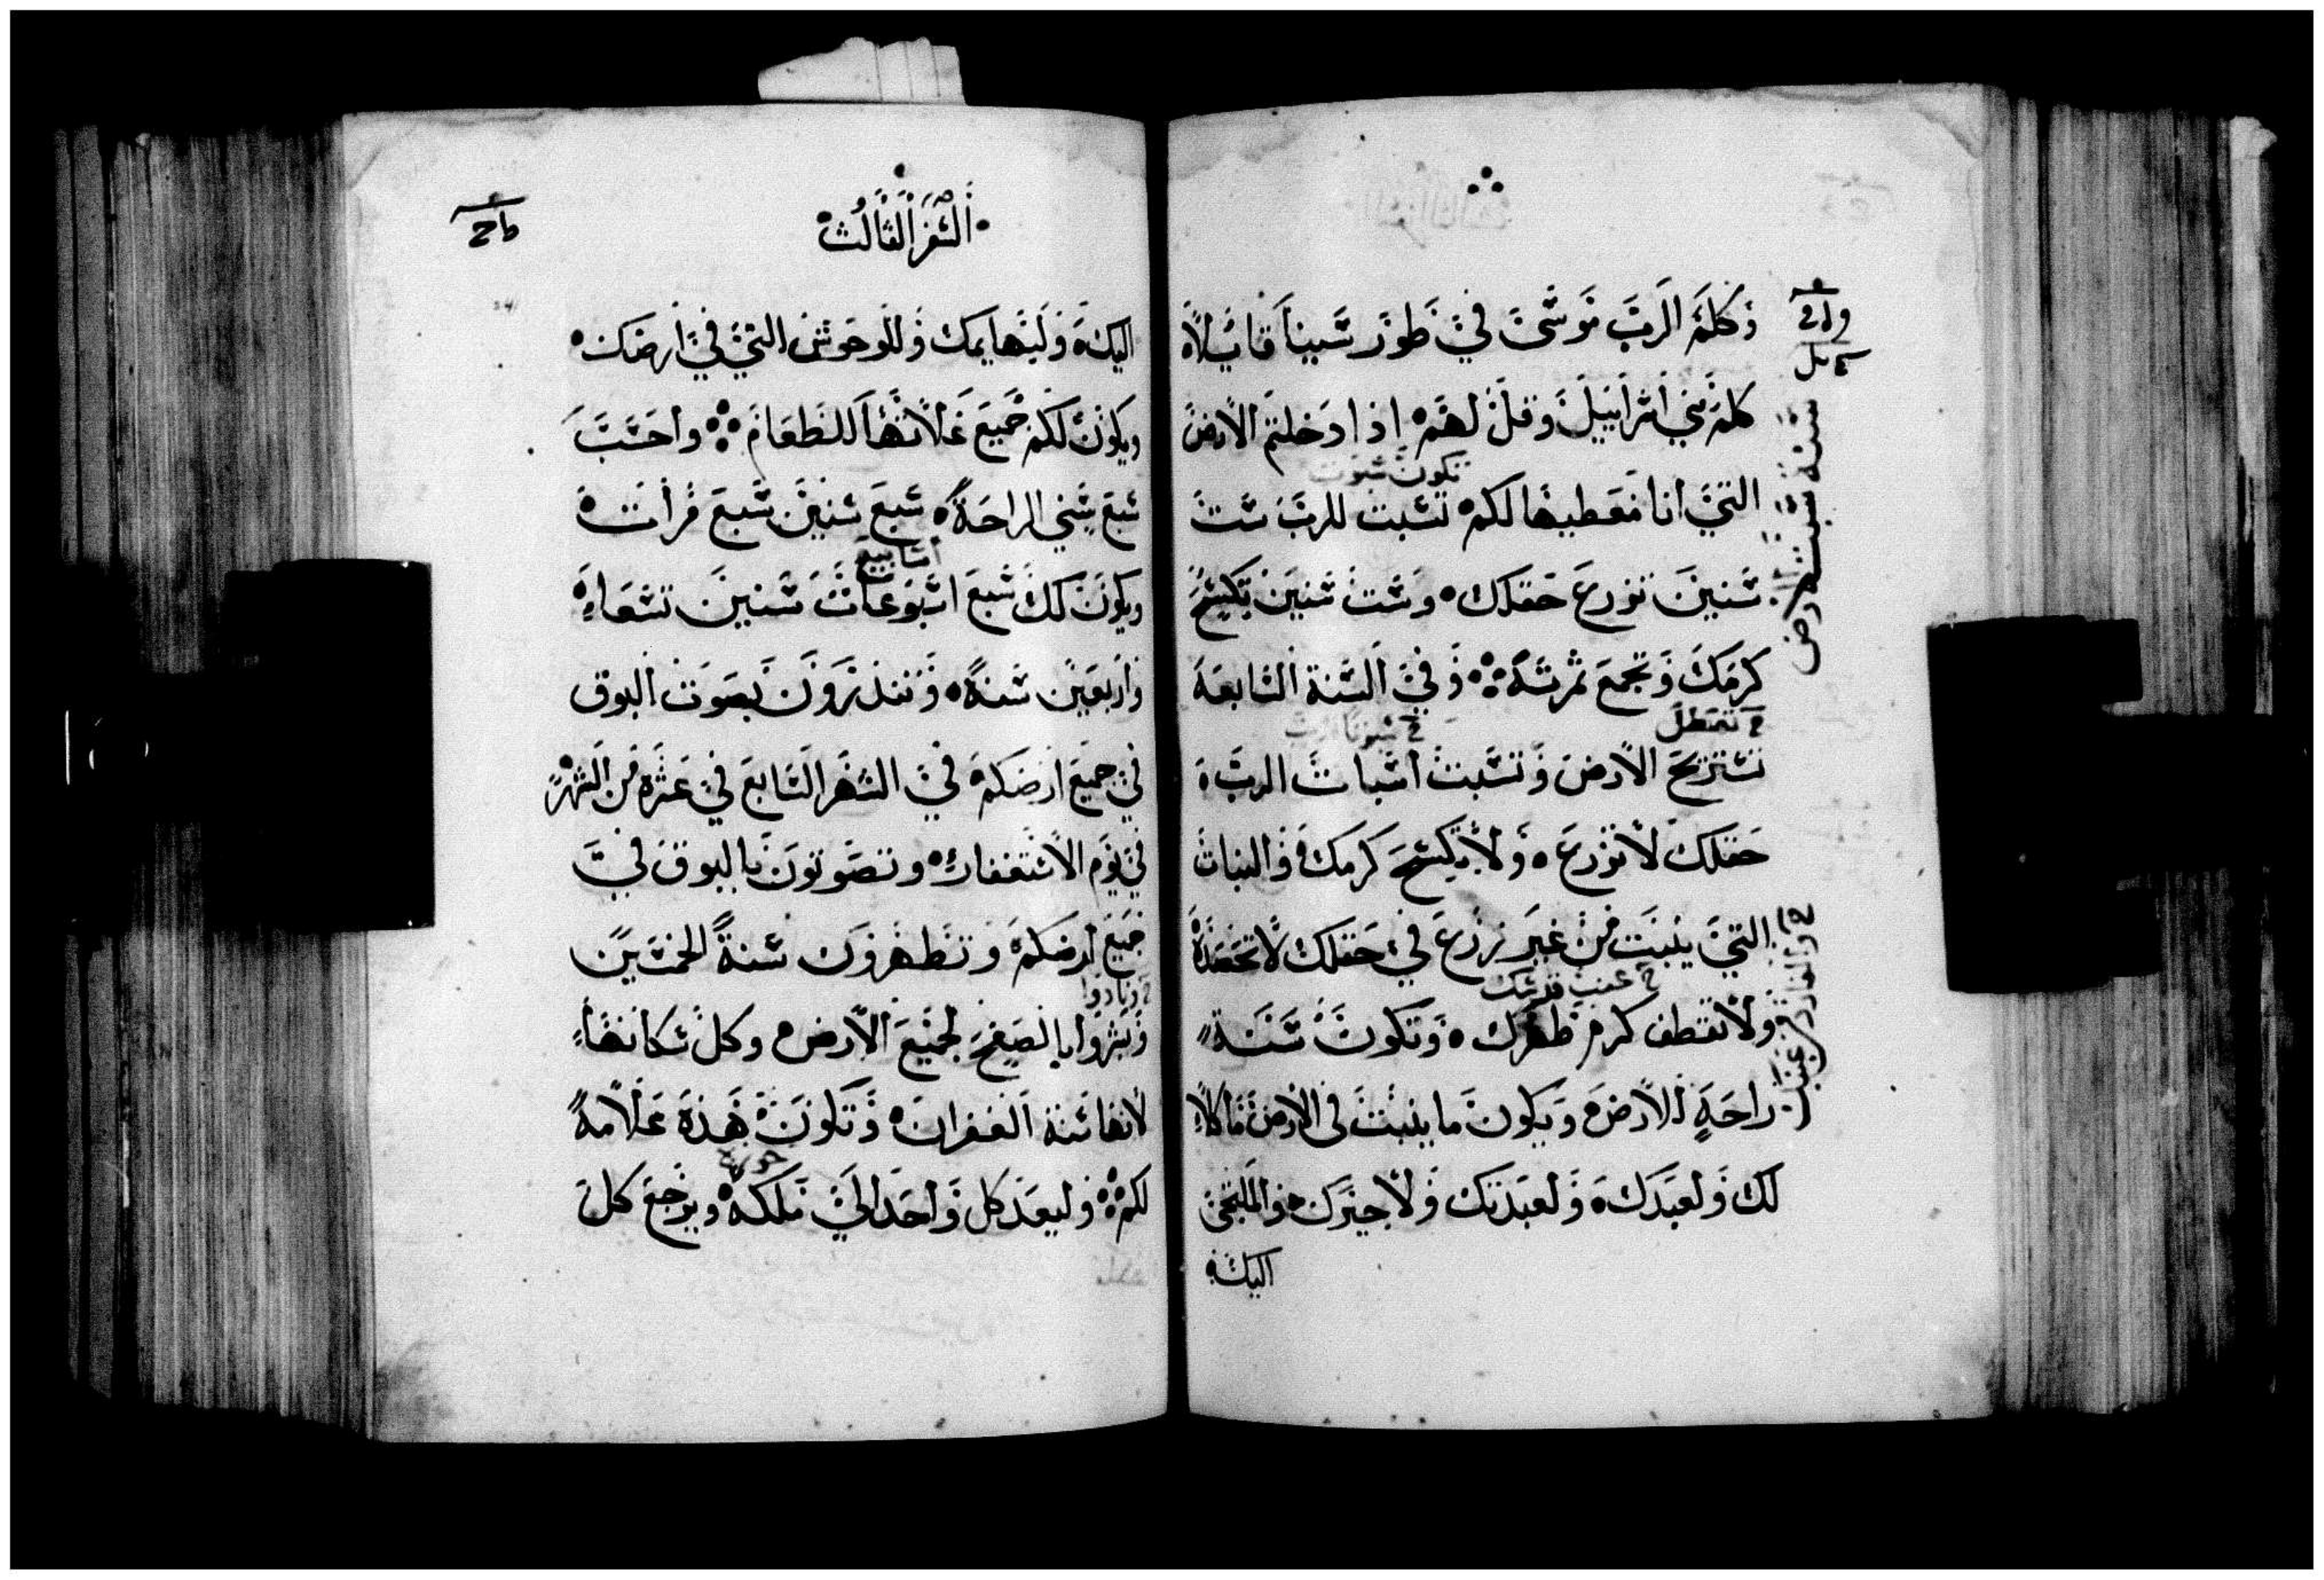 وكلم الرب موسى في طور سينا قايلاً
كلم بني اسراييل وقل لهم اذا دخلتم الارض
تكون سبوت
التي انا معطيها لكم تسبت للرب ست
سنين تزرع حقلك وست سنين تكسح
كرمك وتجمع ثمرته وفي السنة السابعة
تتعطل
تستريح الارض وتسبت اسبات الرب
حقلك لا تزرع ولا تكسح كرمك والنبات
التي ينبت من غير زرع في حقلك لا تحصده
عنب قدسك
ولا تقطف كرم طهرك وتكون سنة
راحة للارض ويكون ما ينبت في الارض ماكلا
لك ولعبدك ولعبدتك ولاجيرك والملتجى
اليك
السفر الثالث
اليك ولبهايمك وللوحوش التي في ارضك
ويكون لكم جميع غلاتها للطعام واحسب
سبع سني الراحة سبع سنين سبع مرات
اسابيع
ويكون لك سبع اسبوعات سنين تسعة
واربعين سنة وتنذرون بصوت البوق
في جميع ارضكم في الشهر السابع في عشرة من الشهر
في يوم الاستغفار وتصوتون بالبوق في
جميع ارضكم وتطهرون سنة الخمسين
ونادوا
وبشروا بالصفح لجميع الارض وكل سكانها
لانها سنة الغفران وتكون هذه علامة
حوزه
لكم وليعد كل واحد الى ملكه ويرجع كل